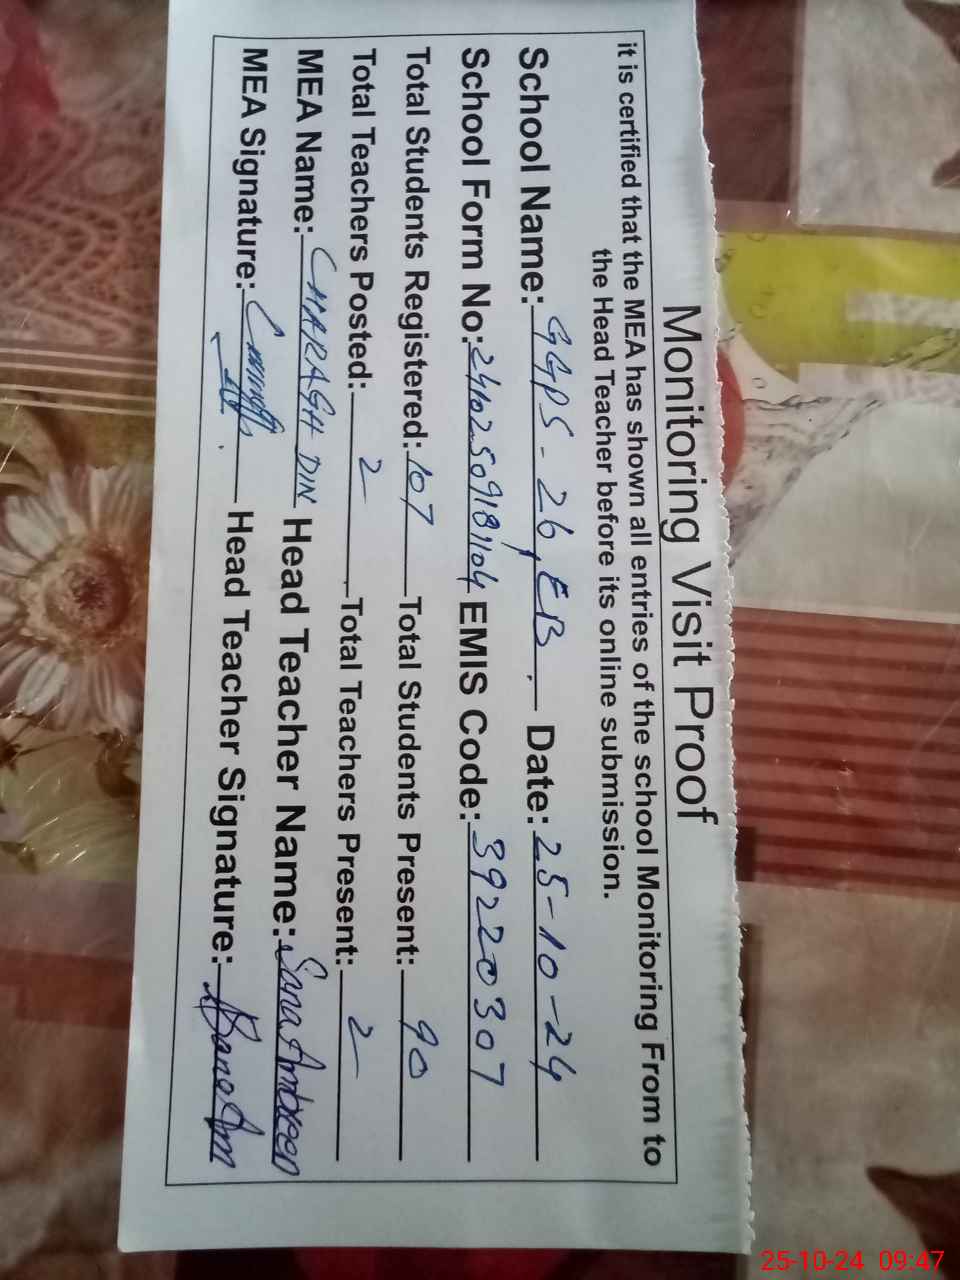 Monitoring Visit Proof
it is certified that the MEA has shown all entries of the school Monitoring From to
the Head Teacher before its online submission.
School Name: GGPS - 26, EB. Date: 25-10-24
School Form No: 24102509181104 EMIS Code: 39220307
Total Students Registered: 107 Total Students Present: 90
Total Teachers Posted: 2 Total Teachers Present: 2
MEA Name: CHARAGH DIN Head Teacher Name: Sana Ambreen
MEA Signature: Head Teacher Signature:
25-10-24 09:47